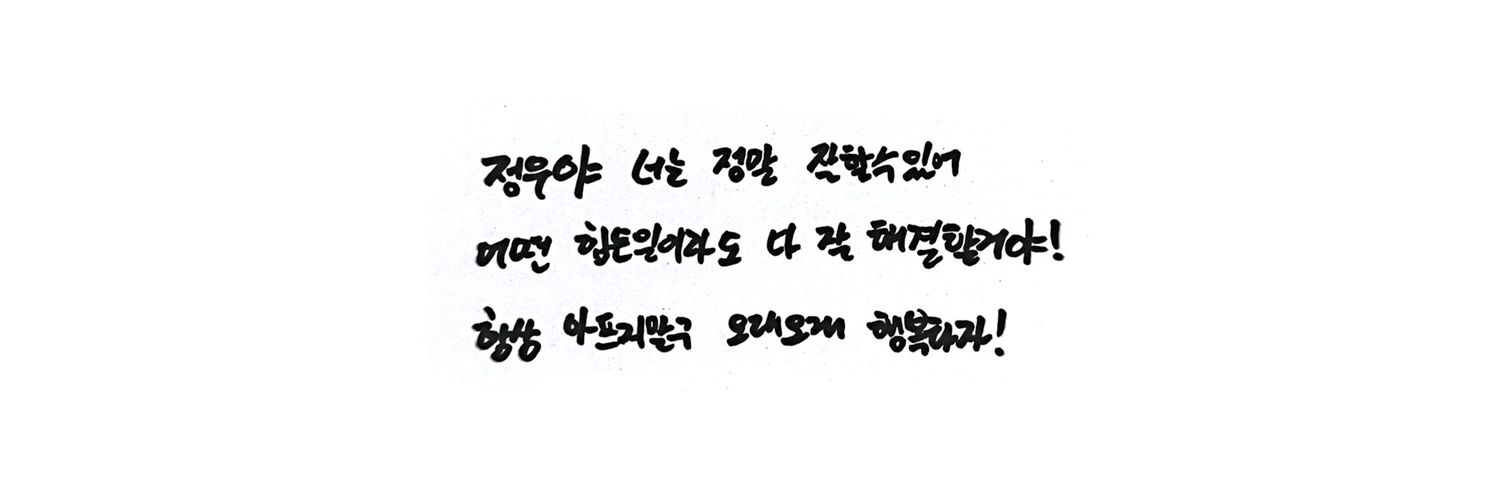 정우야 너는 정말 잘할수있어
어떤 힘든일이라도 다 잘 해결할거야!
항상 아프지말구 오래오래 행복하자!